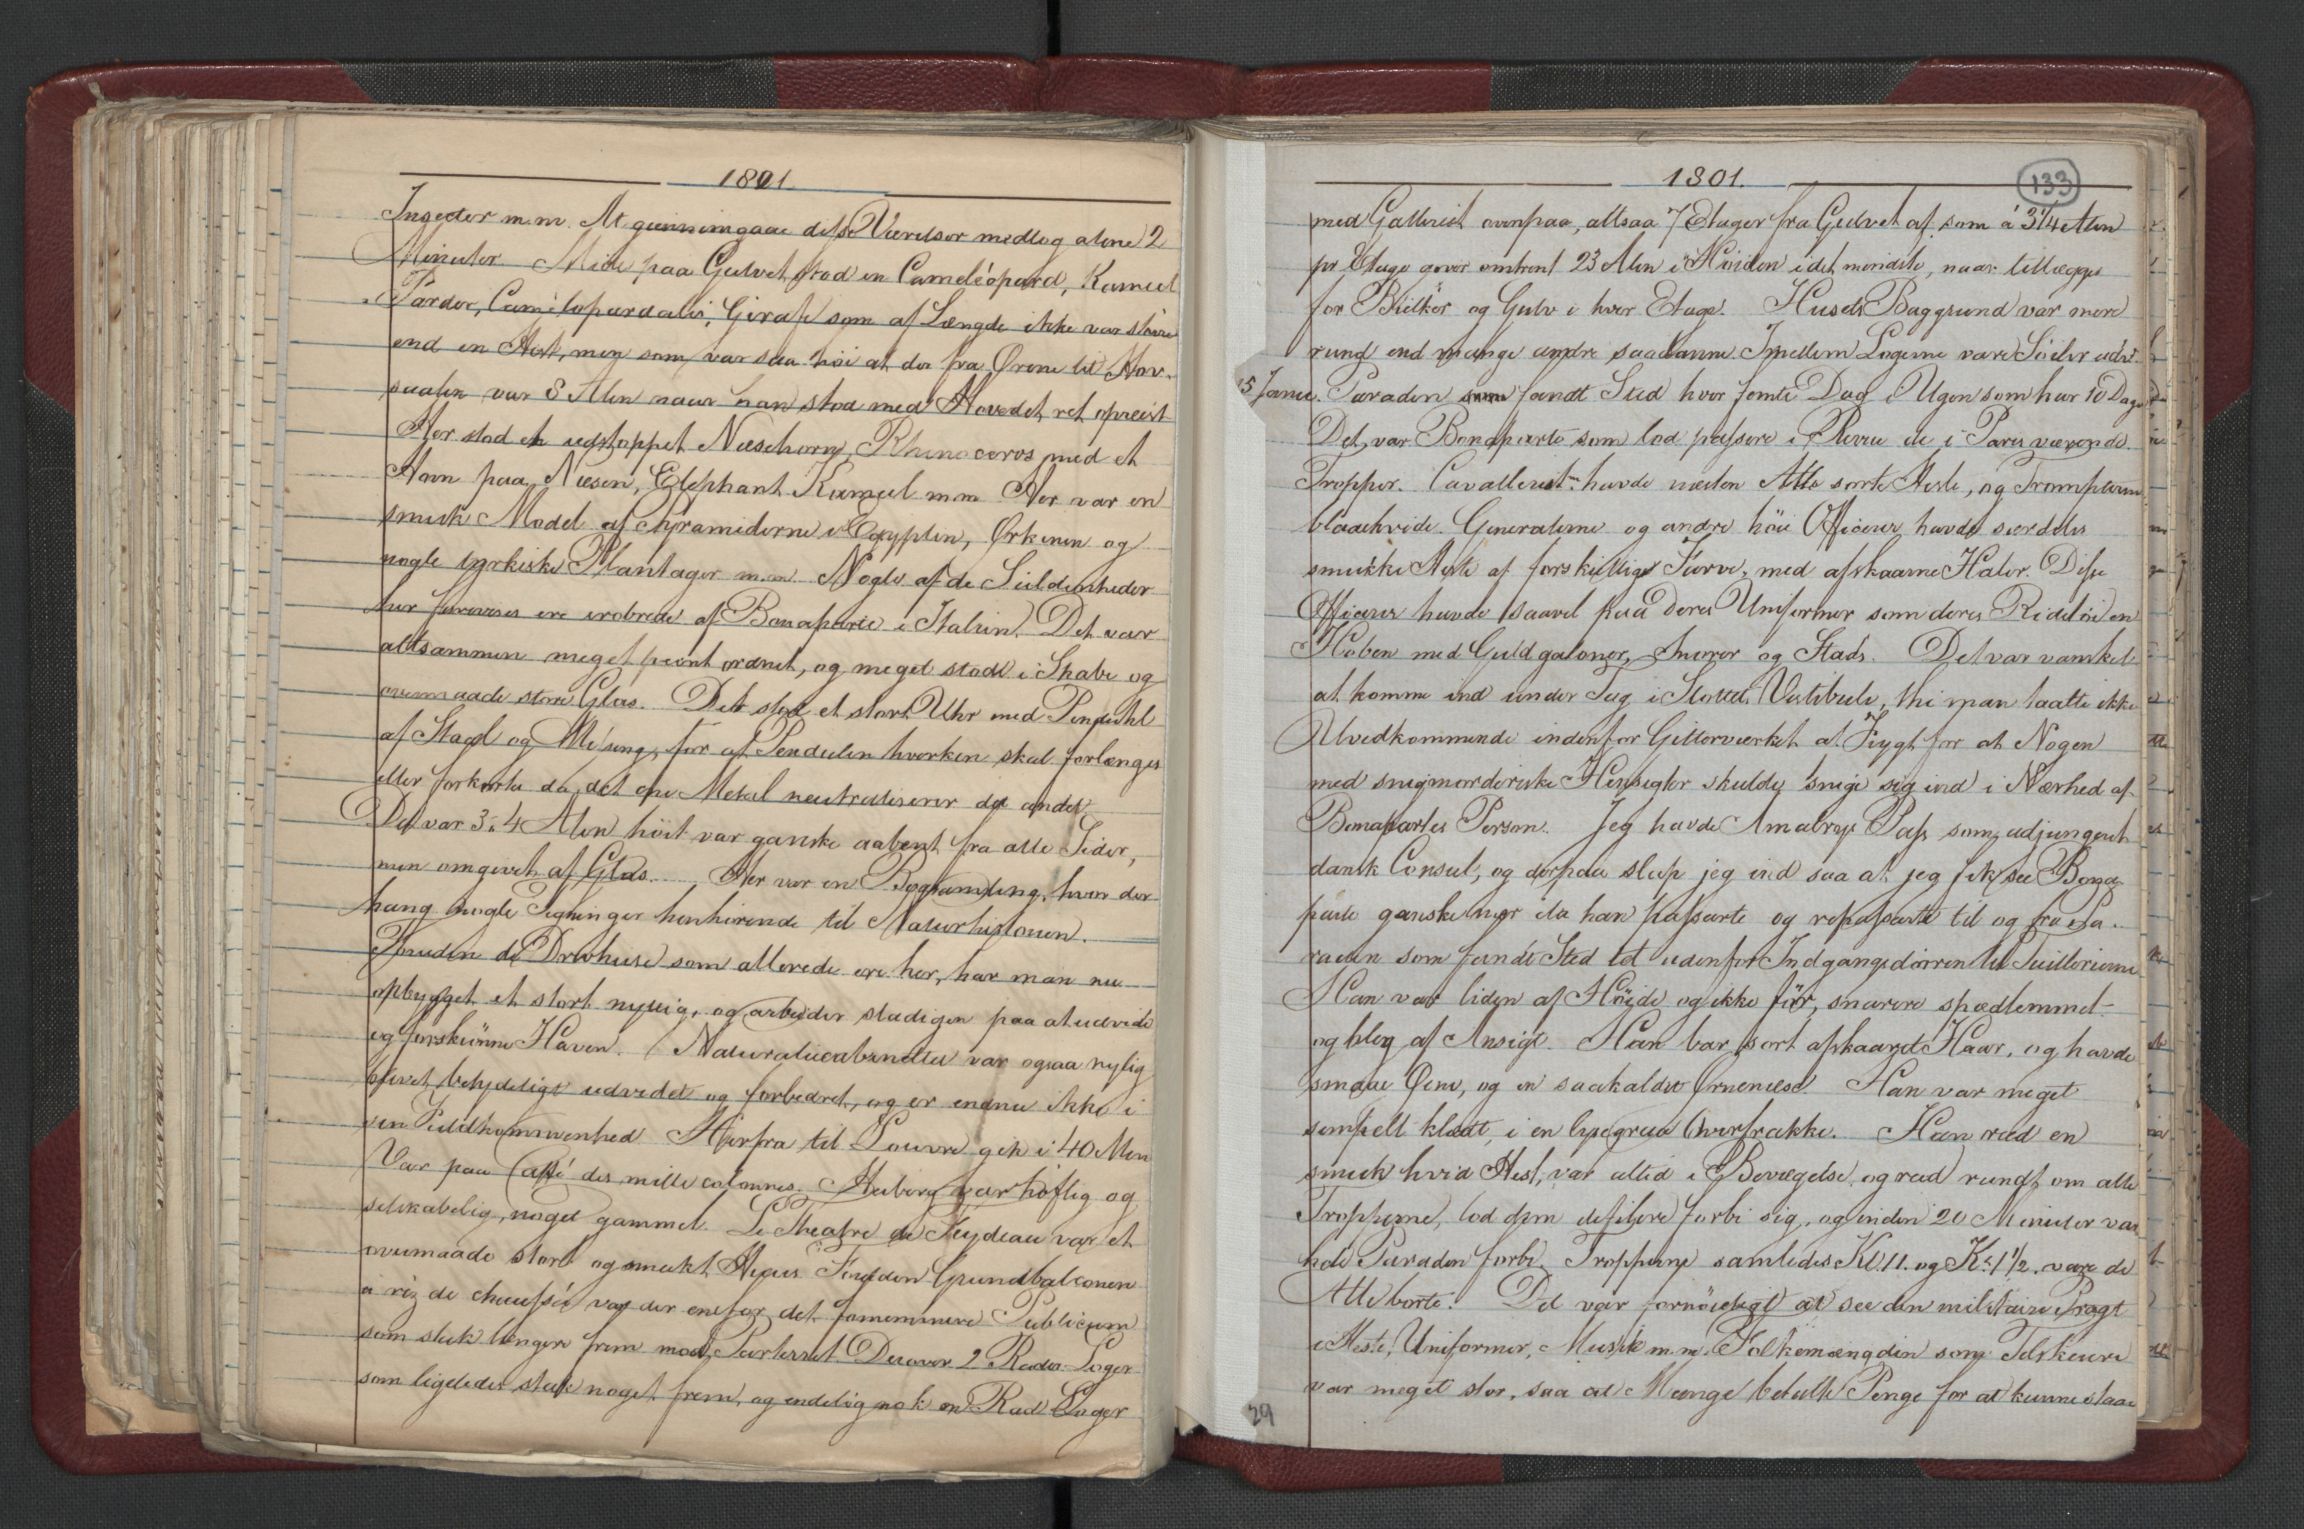 1801.
Insecter m.m. At gjennemgaae disse Værelser medtog alene 2
Minuter. Midt paa Gulvet stod en Cameléopard, Kameel
Parder, Camélopardalis, Giraf som af Længde ikke var større
end en Hest, men som var saa höi at der fra Ørene til Hov-
saalen var 8 Alen naar han stod med Hovedet ret opreist
Her stod et udstoppet Næsehorn, Rhinoceros med et
Horn paa Næsen, Elephant Kameel m m Her var en
smuk Model af Pyramiderne i Egypten, Ørkenen og
nogle tyrkiske Plantager m.m. Nogle af de Sieldenheder
her forevises ere erobrede af Bonaparte i Italien. Det var
altsammen meget peent ordnet, og meget stode i Skabe og
overmaade store Glas. Det stod et stort Uhr med Penduhl
af Staal og Messing, for at Pendulen hverken skal forlænges
eller forkorte da det ene Metal neutraliserer det andet
Det var 3 à 4 Alen höit var ganske aabent fra alle Sider,
men omgivet af Glas. Her var en Bogsamling, hvor der
hang nogle Tegninger henhörende til Naturhistorien.
Foruden de Drivhuse som allerede ere her, har man nu
opbygget et stort nyttig, og arbeider stadigen paa at udvide
og forskiönne Haven. Naturaliecabinettet var ogsaa nylig
blevet betydeligt udvidet og forbedret, og er endnu ikke i
sin Fuldkommenhed Herfra til Louvre gik i 40 Min
Var paa Caffé des mille colonnes. Heiberg var höflig og
selskabelig, noget gammel. Le Theatre de Feydeau var et
overmaade stort og smukt Huus Foruden Grundbalconen
à rez de chaussée var der en for det fornemmere Publicum
som stak længere frem mod Parterret. Derover 2 Rader Loger
som ligeledes stak noget frem, og endelig nok en Rad Loger
1801.
133
med Galleriet ovenpaa, altsaa 7 Etager fra Gulvet af som á 3 1/4 Alen
pr Etage gøver omtrent 23 Alen i Höiden i det mendste, naar tillægges
for Bielker og Gulv i hver Etage. Husets Baggrund var mere
rund end mange andre saadanne. Imellem Logerne vare Söiler
15 Janu. Paraden som fandt Sted hver femte Dag i Ugen som har 10 Dage
Det var Bonaparte som lod passere i Revue de i Paris værende
Tropper. Cavalleriet havde næsten Alle sorte Heste, og Trompeterne
blaaehvide. Generalerne og andre höie Officerer havde særdeles
smukke Heste af forskiellige Farve, med afskaarne Haler. Disse
Officerer havde saavel paa deres Uniformer som deres Ridetöi en
Hoben med Guldgaloner, Snorer og Stads. Det var vanskel
at komme ind under Tag i Slottets Vestibule, thi man taalte ikke
Uvedkommende indenfor Gitterværket af Frygt for at Nogen
med snigmorderiske Hensigter skulde snige sig ind i Nærhed af
Bonapartes Person. Jeg havde Amalrys Pass som adjungeret
dansk Consul, og derpaa slap jeg ind saa at jeg fik see Bona
parte ganske nær da han passerte og repasserte til og fra Pa-
raden som fandt Sted tæt udenfor Indgangsdörren til Tuillerierne
Han var liden af Höide og ikkeför, snarere spædlemmet
og bleg af Ansigt. Han bar sort afskaaret Haar, og havde
smaae Øine, og en saakaldet Ørnenæse. Han var meget
simpelt klædt, i en lysegraa Overfrakke. Han red en
smuk hvid Hest, var altid i Bevægelse, og red rundt om alle
Tropperne, lod dem defilere forbi sig, og inden 20 Minuter var
hele Paraden forbi. Tropperne samledes Kl. 11. og Kl. 1 1/2. vare de
Alle borte. Det var fornöieligt at see den militaire Pragt
i Heste, Uniformer, Musik m.m. Folkemængden som Tilskuere
var meget stor, saa at Mange betalte Penge for at kunne staae
29